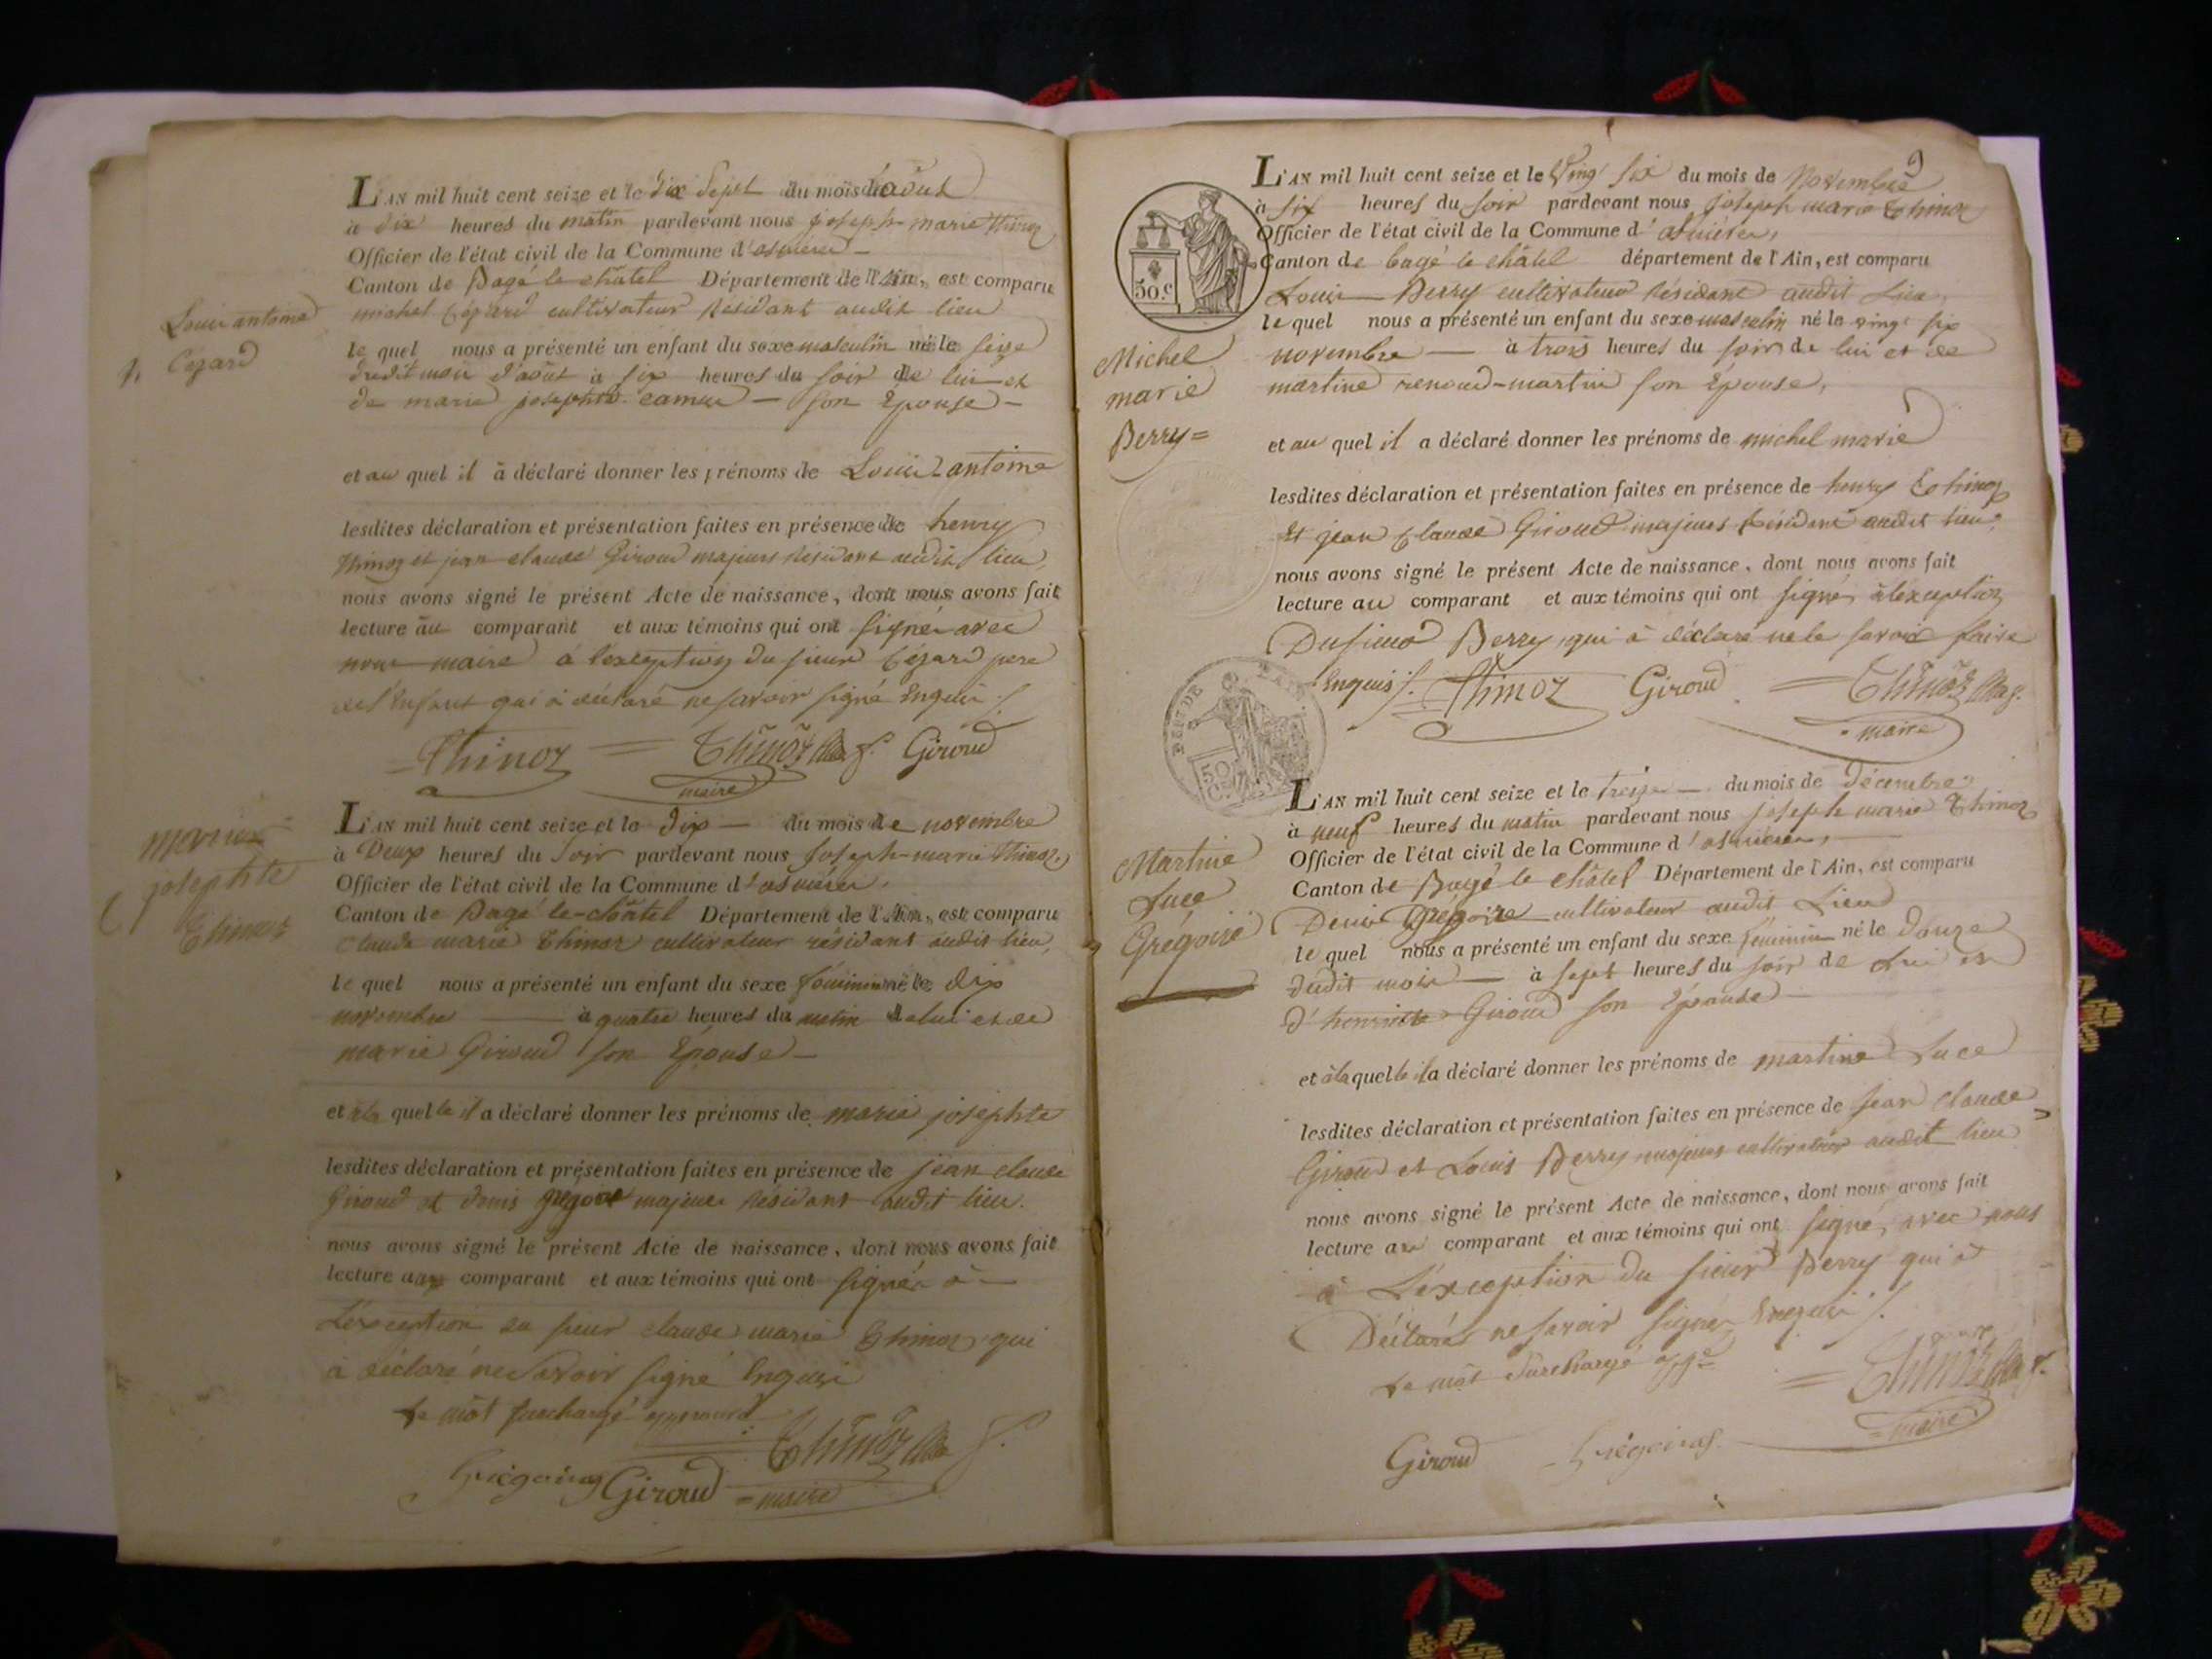 Louis antoine
Cézard
L'AN mil huit cent seize et le dix Sept du mois d'août
à dix heures du matin pardevant nous Joseph-marie Thinoz
Officier de l'état civil de la Commune d'asnieres
Canton de Bagé le châtel Département de l'Ain, est comparu
michel Cézard cultivateur Résidant audit lieu
le quel nous a présenté un enfant du sexe masculin né le seize
dudit mois d'août à six heures du soir de lui et
de marie josephte camus son Epouse
et au quel il à déclaré donner les prénoms de Louis antoine
lesdites déclaration et présentation faites en présence de henry
Thinoz et jean claude Giroud majeurs Résidant audit lieu,
nous avons signé le présent Acte de naissance, dont nous avons fait
lecture au comparant et aux témoins qui ont signés avec
nous maire à l'exception du sieur Cézard pere
de l'enfant qui à déclaré ne savoir signé Enquis
Thinoz Thinoz Giroud
maire
marie
josephte
Thinoz
L'AN mil huit cent seize et le dix du mois de novembre
à Deux heures du Soir pardevant nous Joseph-marie Thinoz
Officier de l'état civil de la Commune d'asnières,
Canton de Bagé le-châtel Département de l'Ain, est comparu
Claude marie Thinoz cultivateur résidant audit lieu,
le quel nous a présenté un enfant du sexe féminin né le dix
novembre à quatre heures du matin de lui et de
marie Giroud son Epouse
et à la quelle il a déclaré donner les prénoms de marie josephte
lesdites déclaration et présentation faites en présence de jean claude
Giroud et denis gregoire majeurs Résidant audit lieu.
nous avons signé le présent Acte de naissance, dont nous avons fait
lecture au comparant et aux témoins qui ont signés à
L'exception du sieur claude marie Thinoz qui
à déclaré ne Savoir signé Enquis
Le môt surchargé approuvé
Thinoz
Grégoire Giroud maire
9
50.c
Michel
marie
Berry
L'AN mil huit cent seize et le Vingt six du mois de Novembre
à six heures du soir pardevant nous joseph marie Thinoz
Officier de l'état civil de la Commune d'asnières,
Canton de bagé le châtel département de l'Ain, est comparu
Louis Berry cultivateur Résidant audit Lieu,
le quel nous a présenté un enfant du sexe masculin né le vingt six
novembre à trois heures du soir de lui et de
martine renoud-martin son Epouse,
et au quel il a déclaré donner les prénoms de michel marie
lesdites déclaration et présentation faites en présence de henry Thinoz
Et jean Claude Giroud majeurs Résidant audit lieu
nous avons signé le présent Acte de naissance, dont nous avons fait
lecture au comparant et aux témoins qui ont signés à l'exception
Du sieur Berry qui à déclaré ne le savoir faire
Enquis Thinoz Giroud Thinoz
maire
Martine
Luce
Grégoire
L'AN mil huit cent seize et le treize du mois de décembre
à neuf heures du matin pardevant nous joseph marie Thinoz
Officier de l'état civil de la Commune d'asnières,
Canton de Bagé le châtel Département de l'Ain, est comparu
Denis Grégoire cultivateur audit Lieu
le quel nous a présenté un enfant du sexe féminin né le douze
dudit mois à sept heures du soir de Lui et
d'henriette Giroud son Epouse
et à la quelle il a déclaré donner les prénoms de martine Luce
lesdites déclaration et présentation faites en présence de jean claude
Giroud et Louis Berry majeurs cultivateur audit lieu
nous avons signé le présent Acte de naissance, dont nous avons fait
lecture au comparant et aux témoins qui ont signé, avec nous
à L'exception du sieur Berry qui à
Déclaré ne savoir signer Enquis
Le môt surchargé
Thinoz
maire
Giroud Grégoire